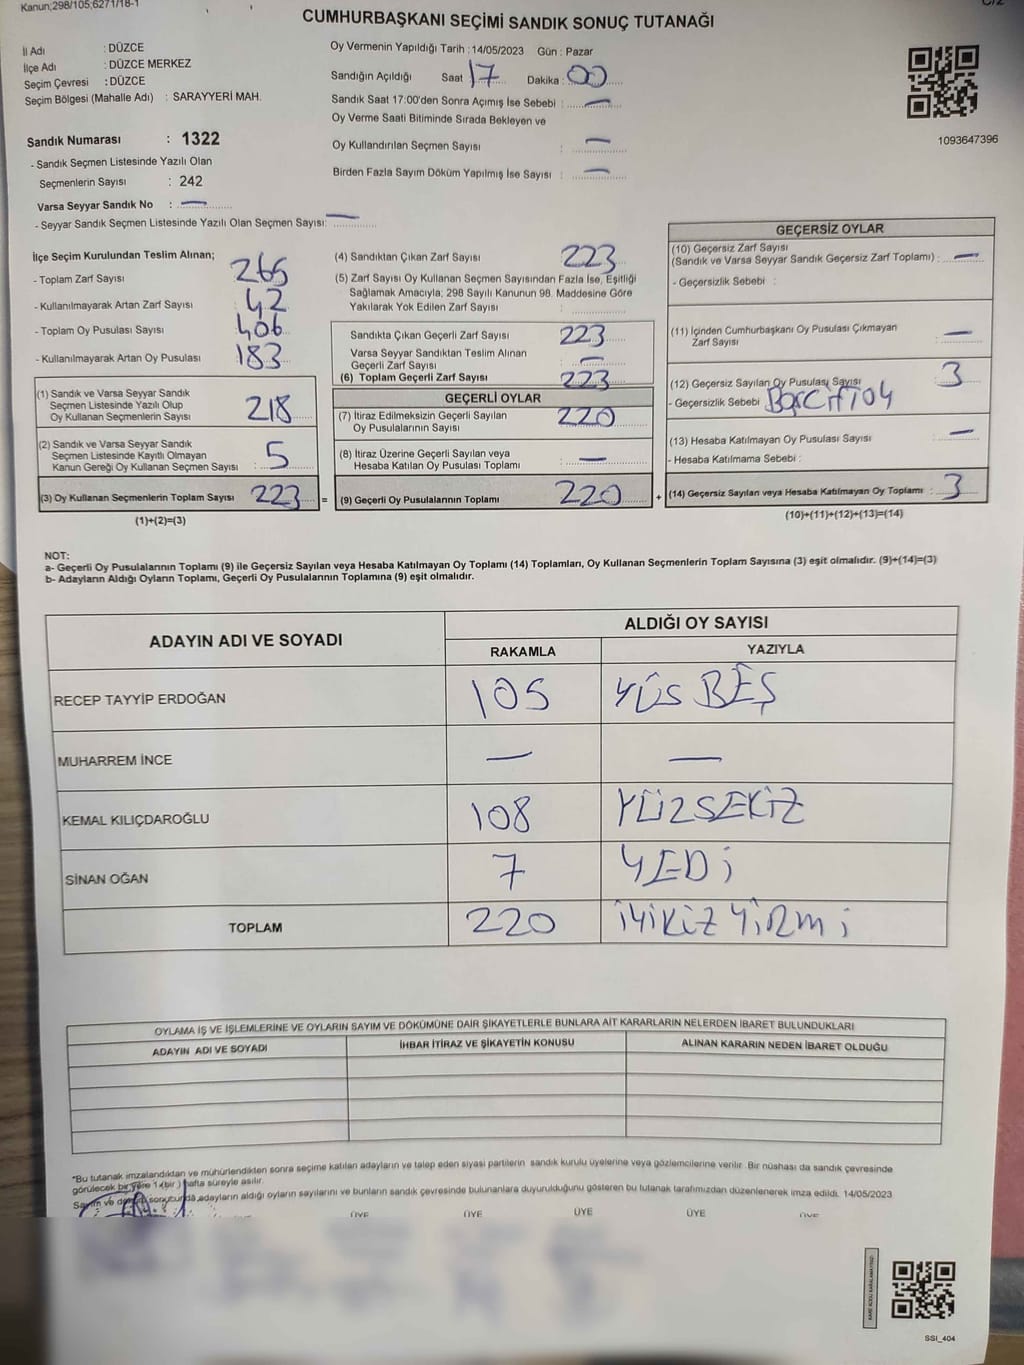 Kanun;298/105;6271/18-1
CUMHURBAŞKANI SEÇİMİ SANDIK SONUÇ TUTANAĞI
İl Adı : DÜZCE
İlçe Adı : DÜZCE MERKEZ
Seçim Çevresi : DÜZCE
Seçim Bölgesi (Mahalle Adı) : SARAYYERİ MAH.
Oy Vermenin Yapıldığı Tarih :14/05/2023 Gün : Pazar
Sandığın Açıldığı Saat 17 Dakika : 00
Sandık Saat 17:00'den Sonra Açımış İse Sebebi : —
Oy Verme Saati Bitiminde Sırada Bekleyen ve
Oy Kullandırılan Seçmen Sayısı : —
Birden Fazla Sayım Döküm Yapılmış İse Sayısı : —
1093647396
Sandık Numarası : 1322
- Sandık Seçmen Listesinde Yazılı Olan
Seçmenlerin Sayısı : 242
Varsa Seyyar Sandık No : —
- Seyyar Sandık Seçmen Listesinde Yazılı Olan Seçmen Sayısı: —
İlçe Seçim Kurulundan Teslim Alınan;
- Toplam Zarf Sayısı 265
- Kullanılmayarak Artan Zarf Sayısı 42
- Toplam Oy Pusulası Sayısı 406
- Kullanılmayarak Artan Oy Pusulası 183
(1) Sandık ve Varsa Seyyar Sandık
Seçmen Listesinde Yazılı Olup
Oy Kullanan Seçmenlerin Sayısı 218
(2) Sandık ve Varsa Seyyar Sandık
Seçmen Listesinde Kayıtlı Olmayan
Kanun Gereği Oy Kullanan Seçmen Sayısı : 5
(3) Oy Kullanan Seçmenlerin Toplam Sayısı 223 =
(1)+(2)=(3)
(4) Sandıktan Çıkan Zarf Sayısı 223
(5) Zarf Sayısı Oy Kullanan Seçmen Sayısından Fazla İse, Eşitliği
Sağlamak Amacıyla; 298 Sayılı Kanunun 98. Maddesine Göre
Yakılarak Yok Edilen Zarf Sayısı :
Sandıkta Çıkan Geçerli Zarf Sayısı 223
Varsa Seyyar Sandıktan Teslim Alınan
Geçerli Zarf Sayısı : —
(6) Toplam Geçerli Zarf Sayısı 223
GEÇERLİ OYLAR
(7) İtiraz Edilmeksizin Geçerli Sayılan
Oy Pusulalarının Sayısı 220
(8) İtiraz Üzerine Geçerli Sayılan veya
Hesaba Katılan Oy Pusulası Toplamı : —
(9) Geçerli Oy Pusulalarının Toplamı 220 +
GEÇERSİZ OYLAR
(10) Geçersiz Zarf Sayısı
(Sandık ve Varsa Seyyar Sandık Geçersiz Zarf Toplamı) : —
- Geçersizlik Sebebi :
(11) İçinden Cumhurbaşkanı Oy Pusulası Çıkmayan
Zarf Sayısı : —
(12) Geçersiz Sayılan Oy Pusulası Sayısı 3
- Geçersizlik Sebebi
(13) Hesaba Katılmayan Oy Pusulası Sayısı : —
- Hesaba Katılmama Sebebi :
(14) Geçersiz Sayılan veya Hesaba Katılmayan Oy Toplamı : 3
(10)+(11)+(12)+(13)=(14)
NOT:
a- Geçerli Oy Pusulalarının Toplamı (9) ile Geçersiz Sayılan veya Hesaba Katılmayan Oy Toplamı (14) Toplamları, Oy Kullanan Seçmenlerin Toplam Sayısına (3) eşit olmalıdır. (9)+(14)=(3)
b- Adayların Aldığı Oyların Toplamı, Geçerli Oy Pusulalarının Toplamına (9) eşit olmalıdır.
ADAYIN ADI VE SOYADI ALDIĞI OY SAYISI
RAKAMLA YAZIYLA
RECEP TAYYİP ERDOĞAN 105 YÜS BEŞ
MUHARREM İNCE — —
KEMAL KILIÇDAROĞLU 108 YÜZSEKİZ
SİNAN OĞAN 7 YEDİ
TOPLAM 220 İYİKİZ YİRMİ
OYLAMA İŞ VE İŞLEMLERİNE VE OYLARIN SAYIM VE DÖKÜMÜNE DAİR ŞİKAYETLERLE BUNLARA AİT KARARLARIN NELERDEN İBARET BULUNDUKLARI
ADAYIN ADI VE SOYADI İHBAR İTİRAZ VE ŞİKAYETİN KONUSU ALINAN KARARIN NEDEN İBARET OLDUĞU
*Bu tutanak imzalandıktan ve mühürlendikten sonra seçime katılan adayların ve talep eden siyasi partilerin sandık kurulu üyelerine veya gözlemcilerine verilir. Bir nüshası da sandık çevresinde
görülecek bir yere 1 (bir ) hafta süreyle asılır.
Sayım ve döküm sonucunda adayların aldığı oyların sayılarını ve bunların sandık çevresinde bulunanlara duyurulduğunu gösteren bu tutanak tarafımızdan düzenlenerek imza edildi. 14/05/2023
ÜYE ÜYE ÜYE ÜYE ÜYE
SSI_404